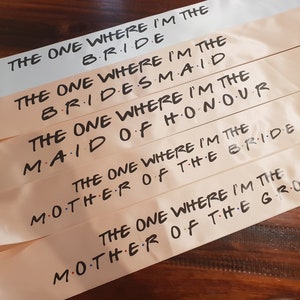 THE ONE WHERE I'M THE
B·R·I·D·E
THE ONE WHERE I'M THE
B·R·I·D·E·S·M·A·I·D
THE ONE WHERE I'M THE
M·A·I·D O·F H·O·N·O·U·R
THE ONE WHERE I'M THE
M·O·T·H·E·R O·F T·H·E B·R·I·D·E
THE ONE WHERE I'M THE
M·O·T·H·E·R O·F T·H·E